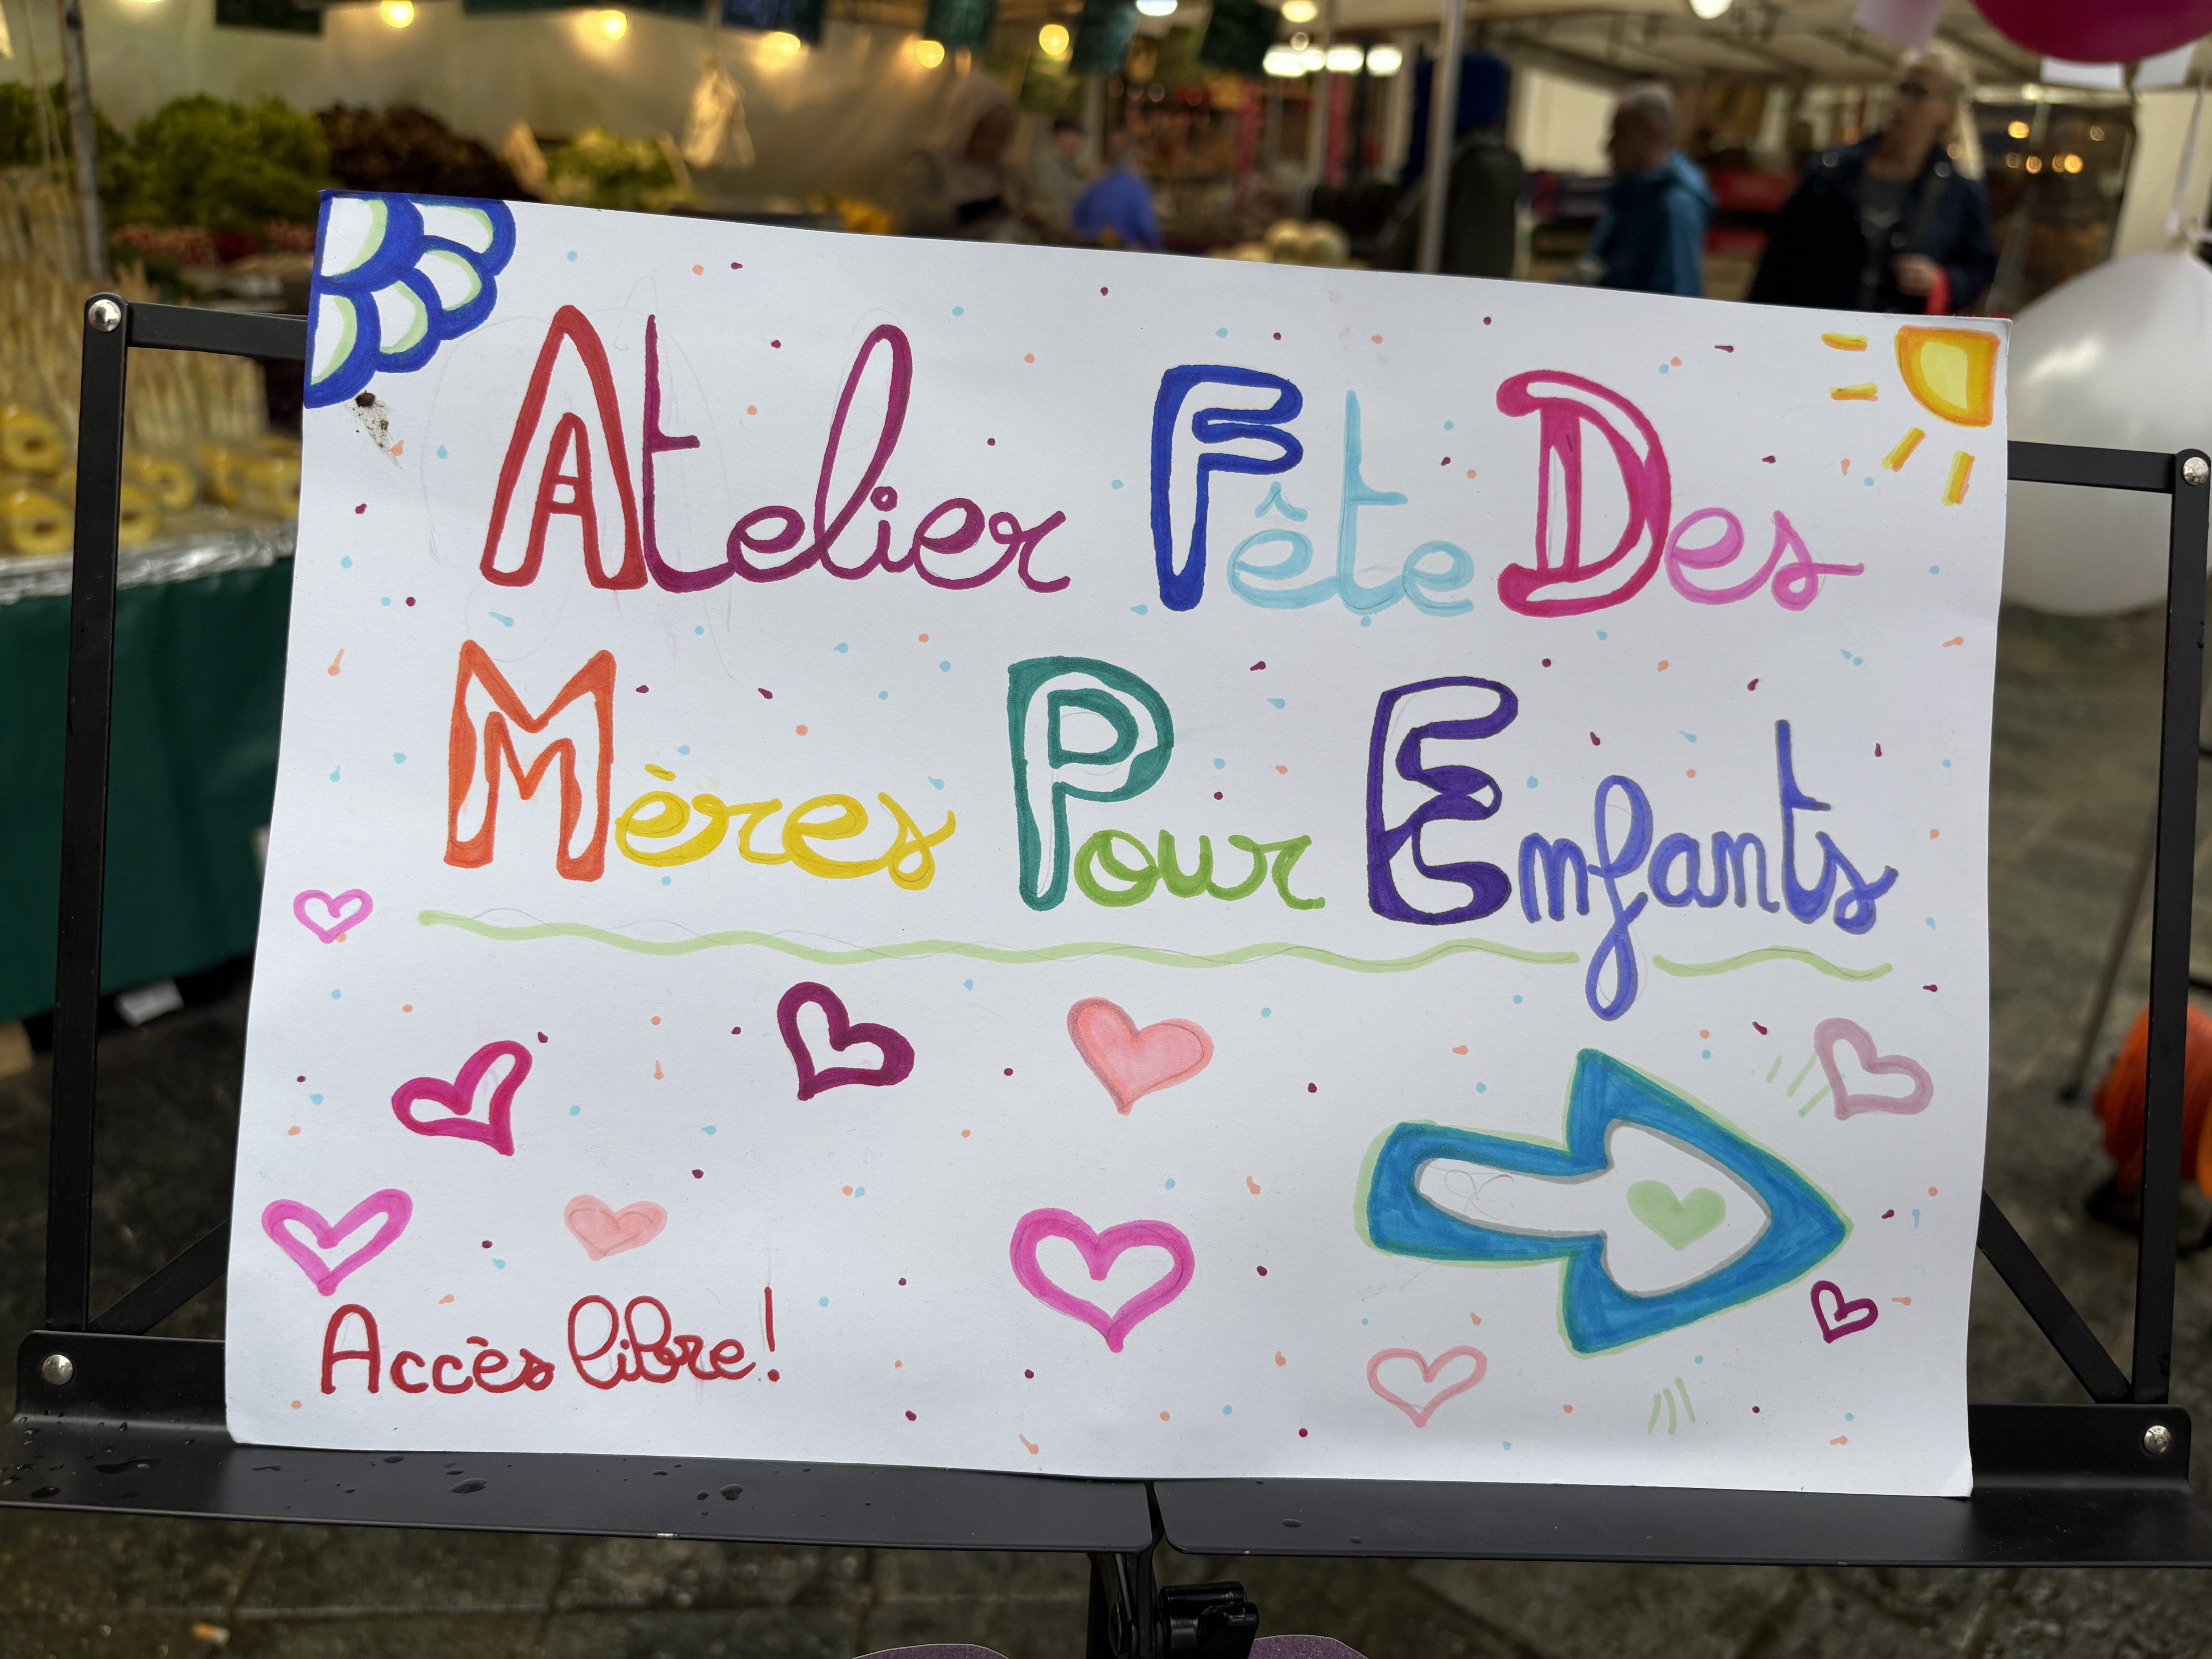 Atelier Fête Des
Mères Pour Enfants
Accès libre!